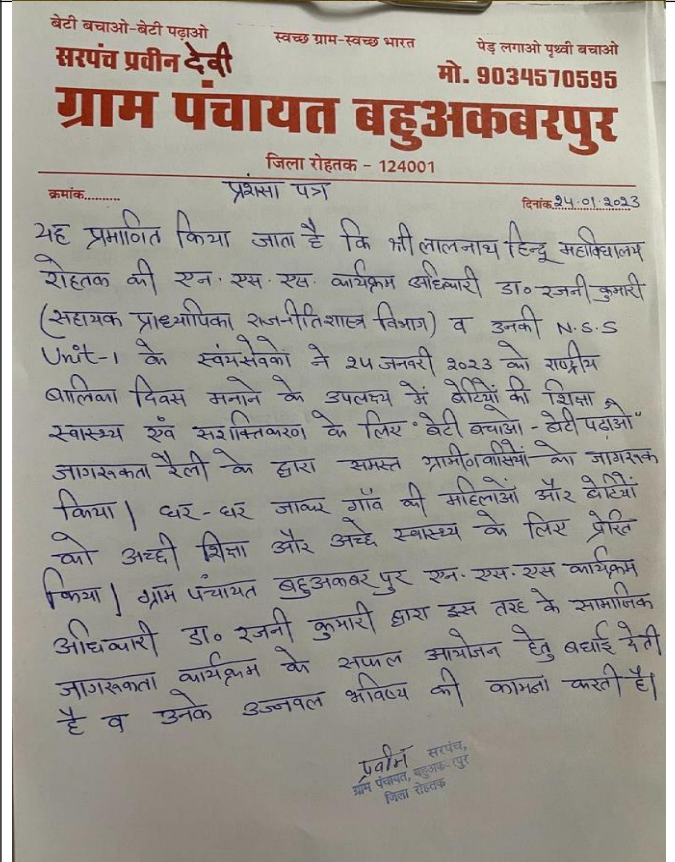 बेटी बचाओ-बेटी पढ़ाओ स्वच्छ ग्राम-स्वच्छ भारत पेड़ लगाओ पृथ्वी बचाओ
सरपंच प्रवीन देवी मो. 9034570595
ग्राम पंचायत बहुअकबरपुर
जिला रोहतक - 124001
क्रमांक.......... प्रशंसा पत्र दिनांक 24.01.2023
यह प्रमाणित किया जाता है कि श्री लालनाथ हिन्दू महाविद्यालय
रोहतक की एन.एस.एस. कार्यक्रम अधिकारी डा० रजनी कुमारी
(सहायक प्राध्यापिका राजनीतिशास्त्र विभाग) व उनकी N.S.S
Unit-1 के स्वंयसेवकों ने 24 जनवरी 2023 को राष्ट्रीय
बालिका दिवस मनाने के उपलक्ष्य में बेटियों की शिक्षा,
स्वास्थ्य एवं सशक्तिकरण के लिए "बेटी बचाओ - बेटी पढ़ाओ"
जागरूकता रैली के द्वारा समस्त ग्रामीणवासियों को जागरूक
किया। घर-घर जाकर गाँव की महिलाओं और बेटियों
को अच्छी शिक्षा और अच्छे स्वास्थ्य के लिए प्रेरित
किया। ग्राम पंचायत बहुअकबरपुर एन.एस.एस कार्यक्रम
अधिकारी डा० रजनी कुमारी द्वारा इस तरह के सामाजिक
जागरूकता कार्यक्रम के सफल आयोजन हेतु बधाई देती
है व उनके उज्जवल भविष्य की कामना करती है।
प्रवीन सरपंच,
ग्राम पंचायत, बहुअकबरपुर
जिला रोहतक